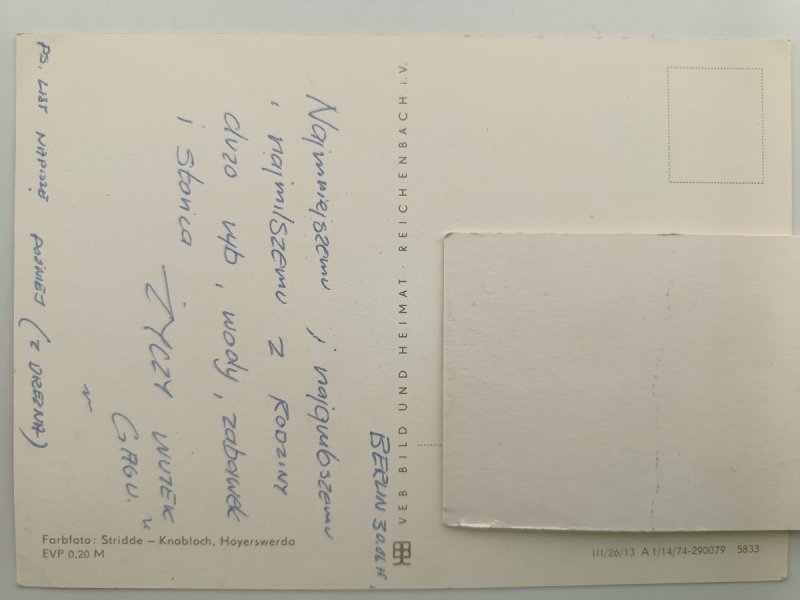 BERLIN 30.06.75.
Najmniejszemu i najgrubszemu
i najmilszemu z Rodziny
dużo ryb, wody, zabawek
i słońca
ŻYCZY WUJEK
GAGU.
PS. LIST NAPISZĘ POŹNIEJ (Z DREZNA)
VEB BILD UND HEIMAT · REICHENBACH i.V.
Farbfoto: Stridde – Knobloch, Hoyerswerda
EVP 0,20 M
III/26/13 A 1/14/74-290079 5833